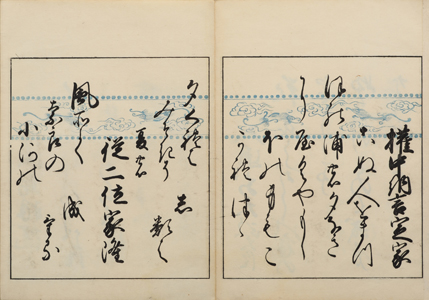 權中納言定家
こぬ人をまつ
ほの浦の夕なき
にやくやもし
ほの身もこ
かれつゝ
從二位家隆
風そよく
奈良の
小河の
夕くれは
みそきそ
夏の
志
類し
成